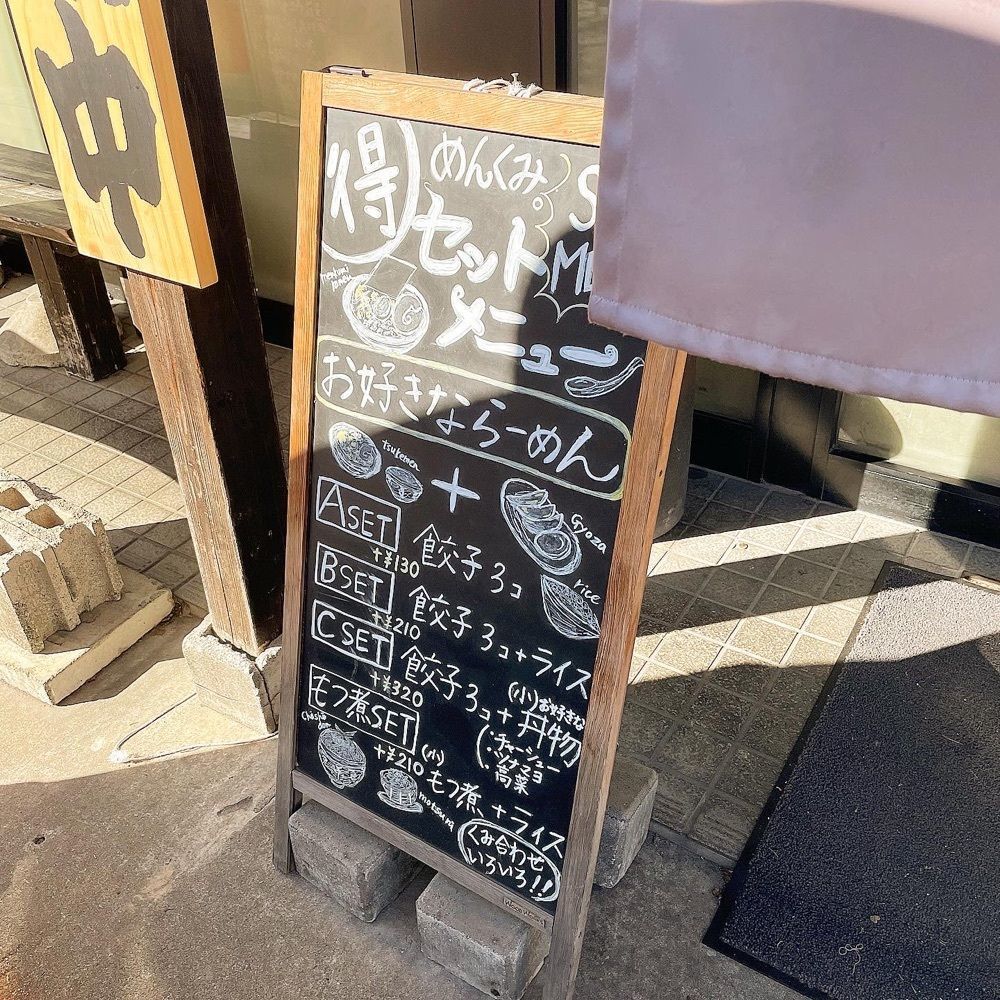 中
得
めんくみ
セットメニュー
menkumi
お好きならーめん
tsukemen
+
Gyoza
rice
A SET
+¥130
餃子3コ
B SET
+¥210
餃子3コ+ライス
C SET
+¥320
餃子3コ+丼物
(小)お好きな
・チャーシュー
・ツナマヨ
高菜
もつ煮SET
+¥210
(小)
もつ煮+ライス
くみ合わせ
いろいろ!!